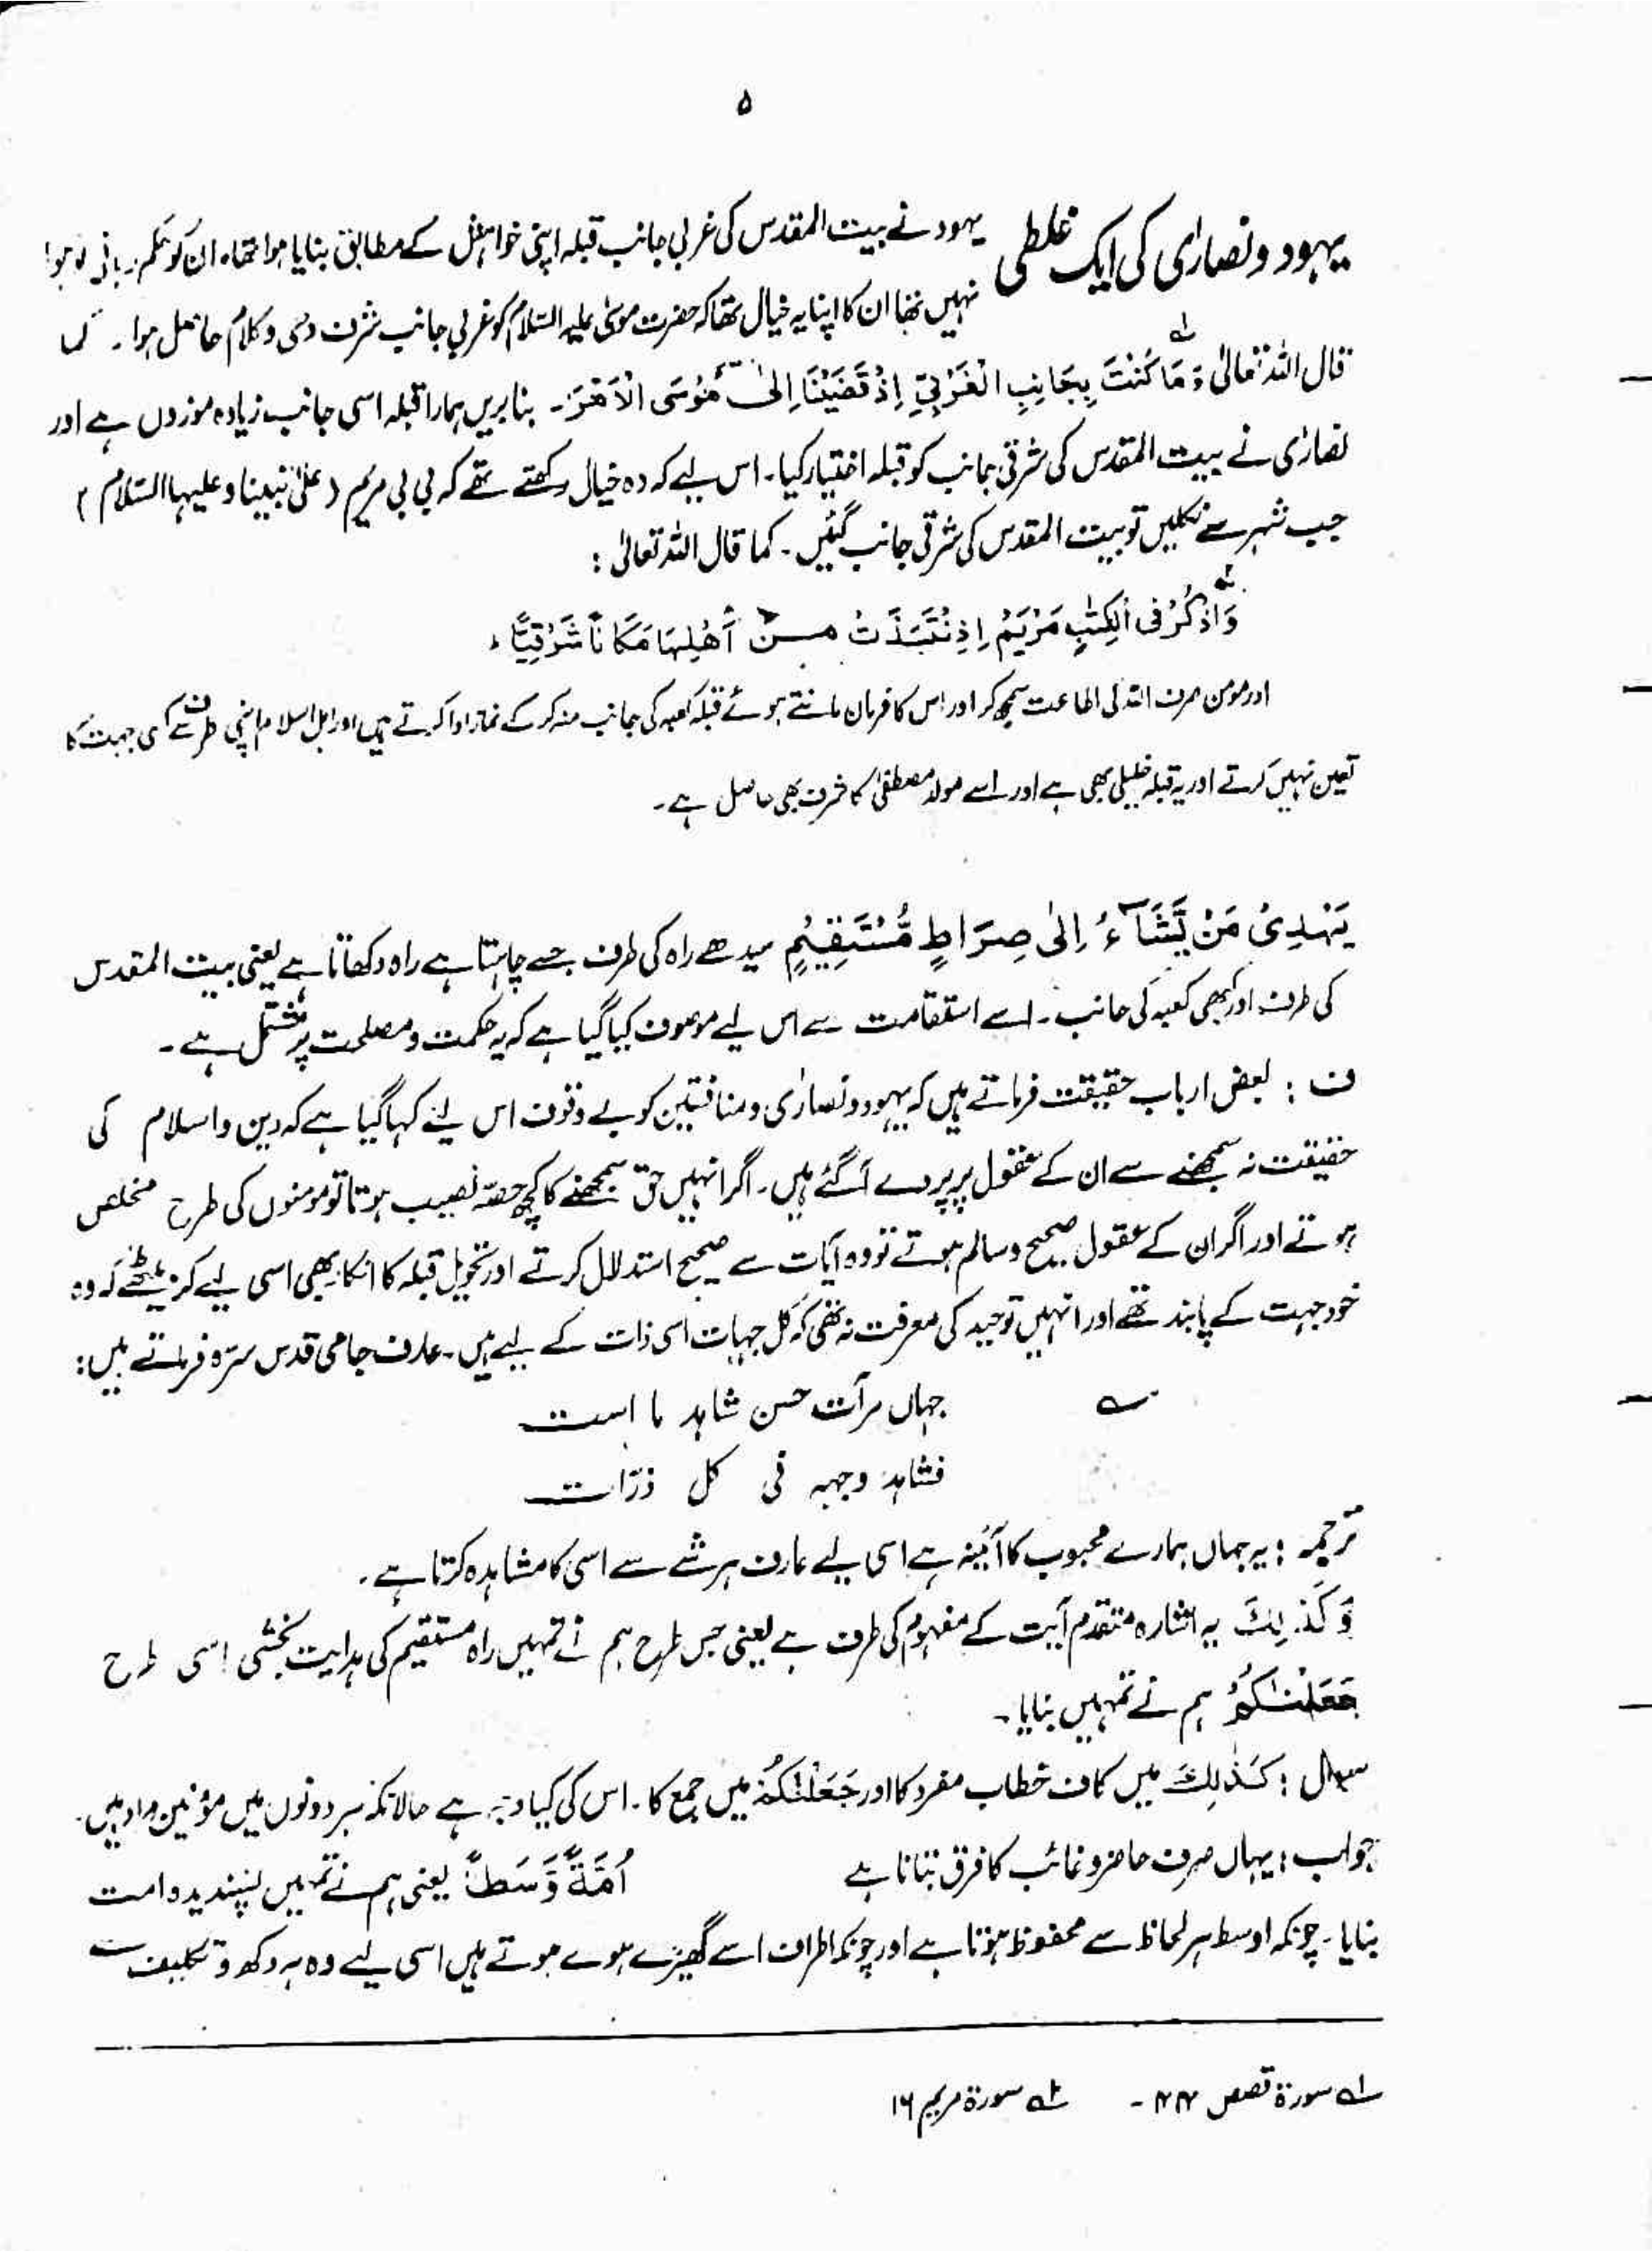 ۵
یہود و نصاریٰ کی ایک غلطی یہود نے بیت المقدس کی غربی جانب قبلہ اپنی خواہش کے مطابق بنایا ہوا تھا۔ ان کو حکم ربانی نہ ہوا
نہیں تھا ان کا اپنا یہ خیال تھا کہ حضرت موسیٰ علیہ السّلام کو غربی جانب شرف وحی و کلام حاصل ہوا۔ کما
قال اللہ تعالیٰ وَمَا كُنْتَ بِجَانِبِ الْغَرْبِيِّ اِذْ قَضَيْنَا اِلٰى مُوْسَى الْاَمْرَ۔ بنا بریں ہمارا قبلہ اسی جانب زیادہ موزوں ہے اور
نصاریٰ نے بیت المقدس کی شرقی جانب کو قبلہ اختیار کیا۔ اس لیے کہ وہ خیال رکھتے تھے کہ بی بی مریم (علیٰ نبینا و علیہا السّلام)
جب شہر سے نکلیں تو بیت المقدس کی شرقی جانب گئیں۔ کما قال اللہ تعالیٰ :
وَاذْكُرْ فِى الْكِتٰبِ مَرْيَمُ اِذِ نْتَبَذَتْ مِنْ اَهْلِهَا مَكَانًا شَرْقِيًّا ،
اور مومن صرف اللہ کی اطاعت سمجھ کر اور اس کا فرمان مانتے ہوئے قبلہ کعبہ کی جانب منہ کر کے نماز ادا کرتے ہیں اور اہل اسلام اپنی طرف سے کسی جہت کا
تعین نہیں کرتے اور یہ قبلہ خلیلی بھی ہے اور اسے مولد مصطفیٰ کا شرف بھی حاصل ہے۔
يَهْدِىْ مَنْ يَّشَآءُ اِلٰى صِرَاطٍ مُّسْتَقِيْمٍ سیدھے راہ کی طرف جسے چاہتا ہے راہ دکھاتا ہے یعنی بیت المقدس
کی طرف اور کبھی کعبہ کی جانب۔ اسے استقامت سے اس لیے موصوف کیا گیا ہے کہ یہ حکمت و مصلحت پر مشتمل ہے۔
ف : بعض ارباب حقیقت فرماتے ہیں کہ یہود و نصاریٰ و منافقین کو بے وقوف اس لیے کہا گیا ہے کہ دین و اسلام کی
حقیقت نہ سمجھنے سے ان کے عقول پر پردے آگئے ہیں۔ اگر انہیں حق سمجھنے کا کچھ حصّہ نصیب ہوتا تو مومنوں کی طرح مخلص
ہوتے اور اگر ان کے عقول صحیح و سالم ہوتے تو وہ آیات سے صحیح استدلال کرتے اور تحویل قبلہ کا انکار بھی اسی لیے کر بیٹھے کہ وہ
خود جہت کے پابند تھے اور انہیں توحید کی معرفت نہ تھی کہ کل جہات اسی ذات کے لیے ہیں۔ عارف جامی قدس سرّہ فرماتے ہیں:
؎ جہاں مرآت حسن شاہد ما است
فشاہد وجہہ فی کل ذرّات
ترجمہ : یہ جہاں ہمارے محبوب کا آئینہ ہے اسی لیے عارف ہر شے سے اسی کا مشاہدہ کرتا ہے۔
وَكَذٰلِكَ یہ اشارہ متقدم آیت کے مفہوم کی طرف ہے یعنی جس طرح ہم نے تمہیں راہ مستقیم کی ہدایت بخشی اسی طرح
جَعَلْنٰكُمْ ہم نے تمہیں بنایا۔
سوال : كَذٰلِكَ میں کاف خطاب مفرد کا اور جَعَلْنٰكُمْ میں جمع کا۔ اس کی کیا وجہ ہے حالانکہ ہر دونوں میں مؤمنین مراد ہیں۔
جواب : یہاں صرف حاضر و غائب کا فرق بتانا ہے اُمَّةً وَّسَطًا یعنی ہم نے تمہیں پسندیدہ امت
بنایا۔ چونکہ اوسط ہر لحاظ سے محفوظ ہوتا ہے اور چونکہ اطراف اسے گھیرے ہوے ہوتے ہیں اسی لیے وہ ہر دکھ و تکلیف سے
لہ سورۃ قصص ۴۴۔ ۲ہ سورۃ مریم ۱۶